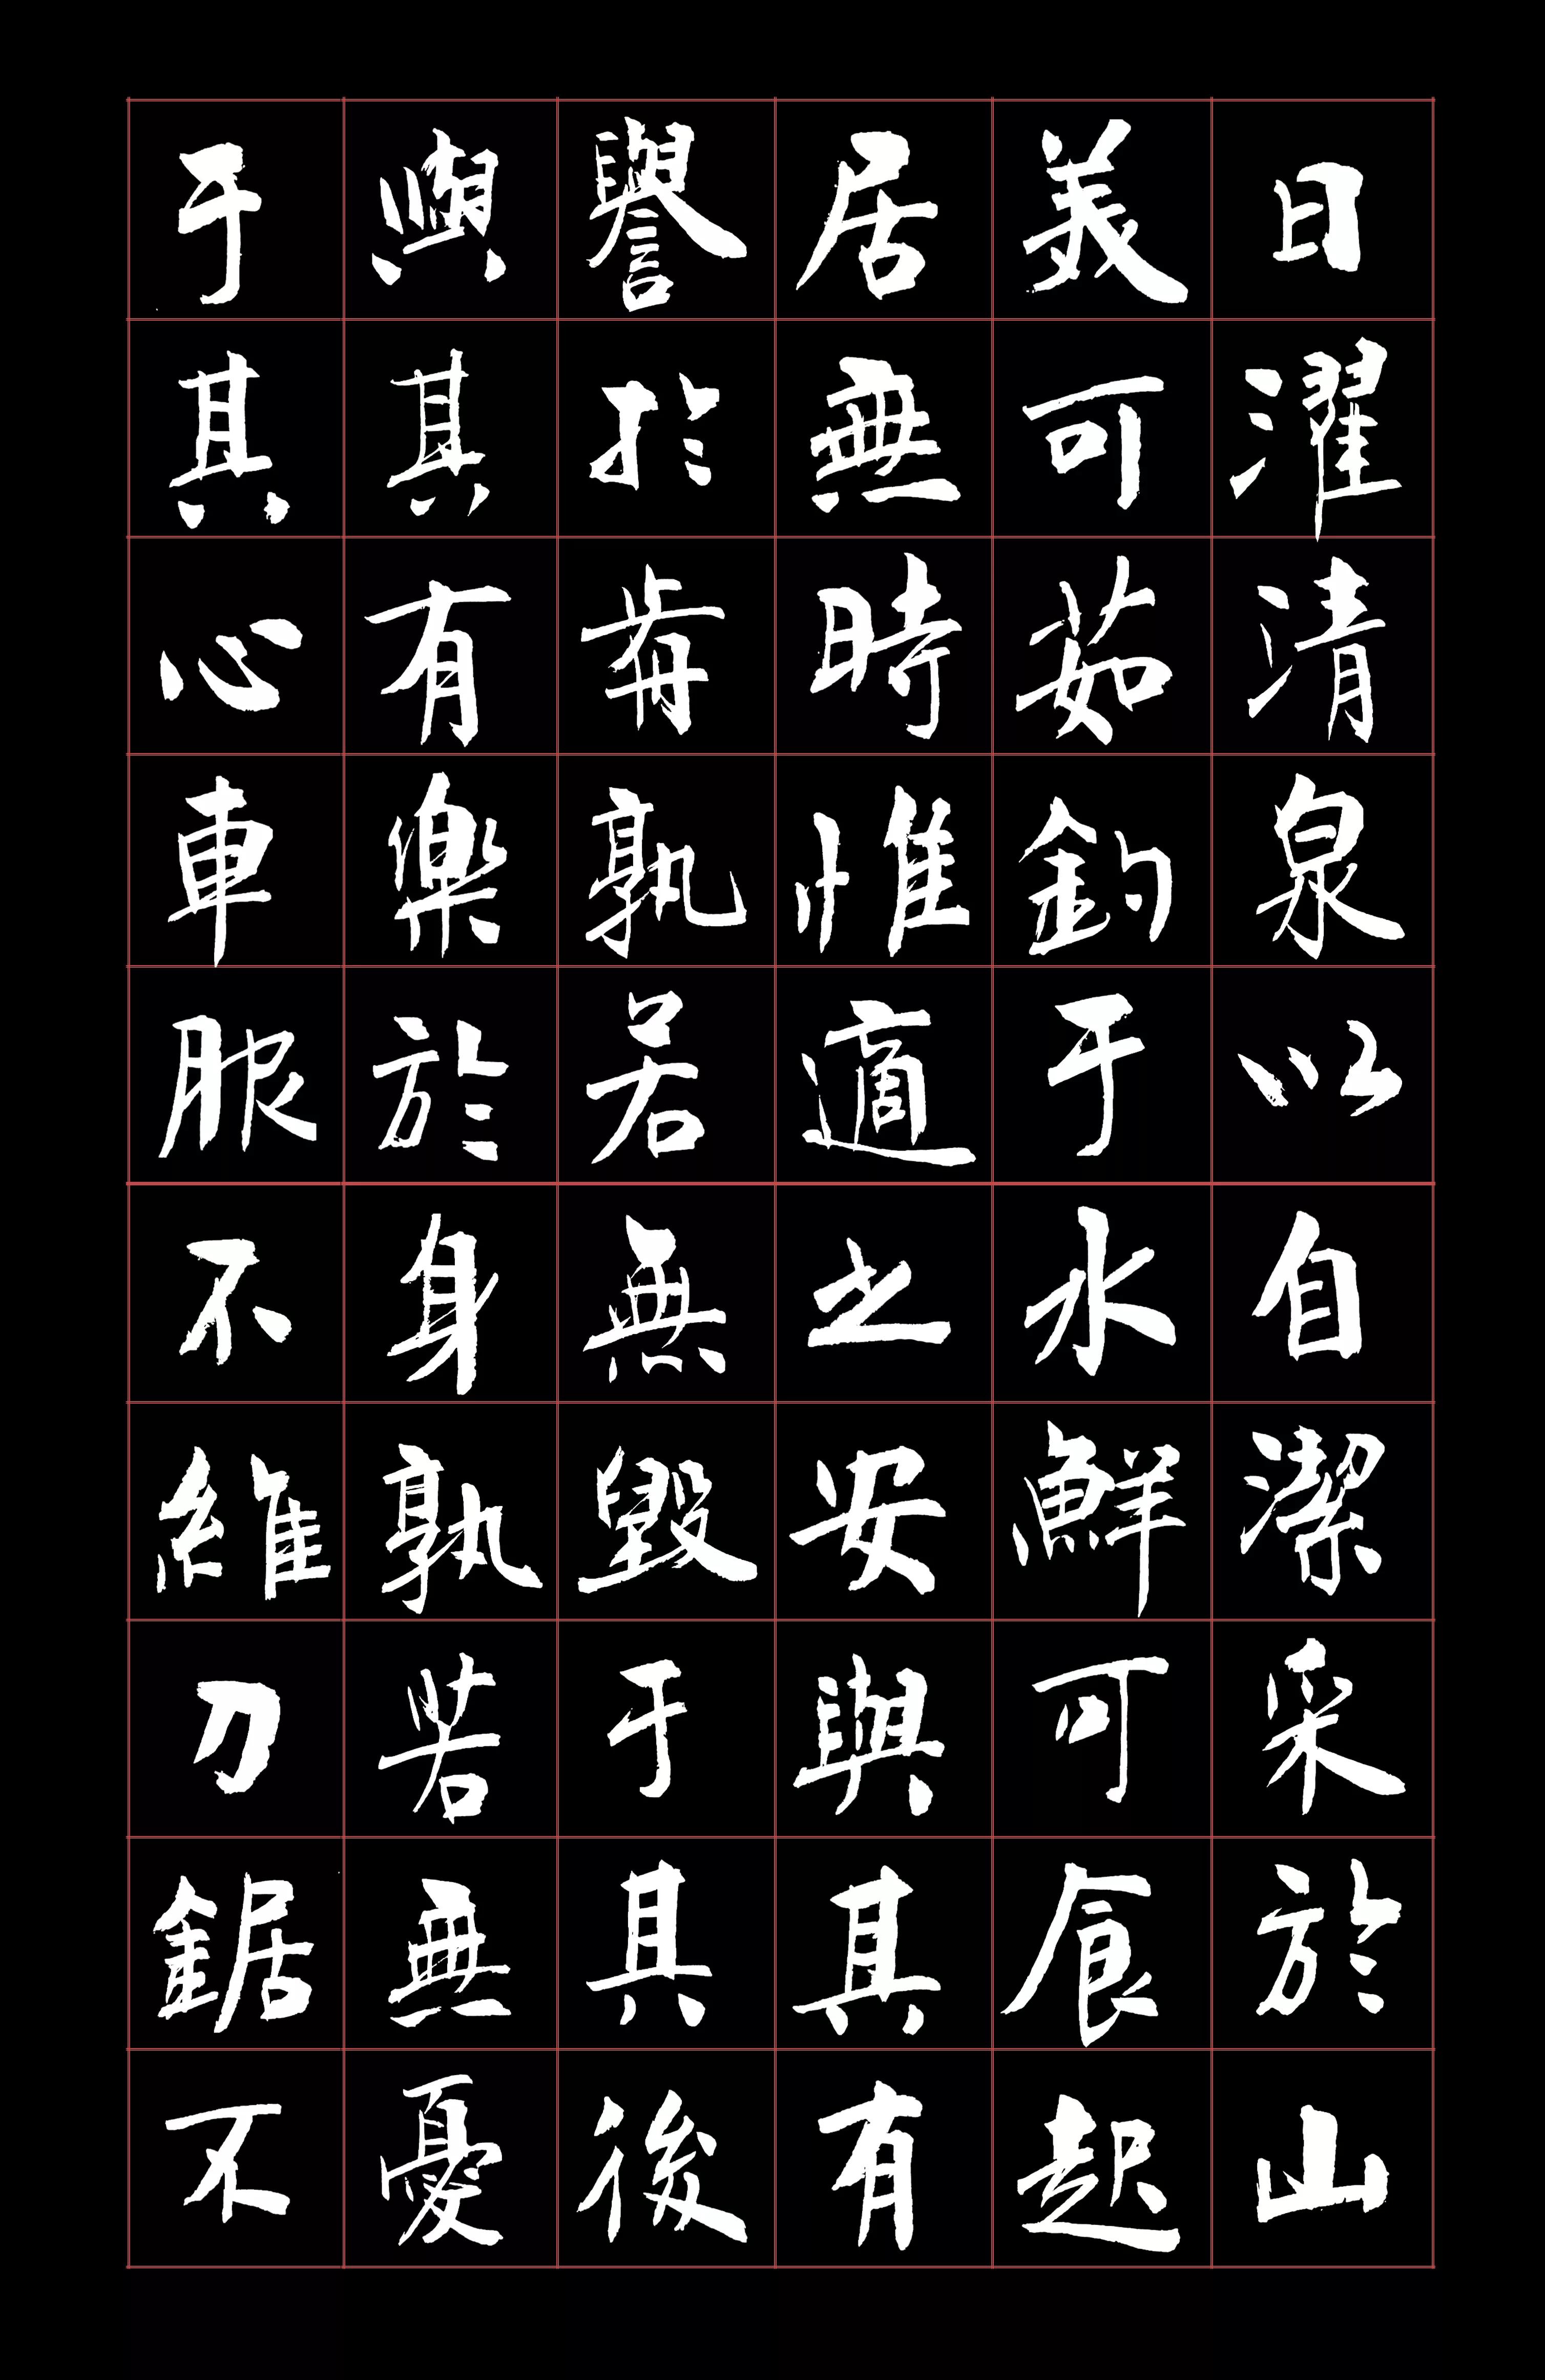 日濯清泉以自潔采於山
美可茹釣于水鮮可食起
居無時惟適之安與其有
譽於前孰若無毀于其後
與其有樂於身孰若無憂
于其心車服不維刀鋸不